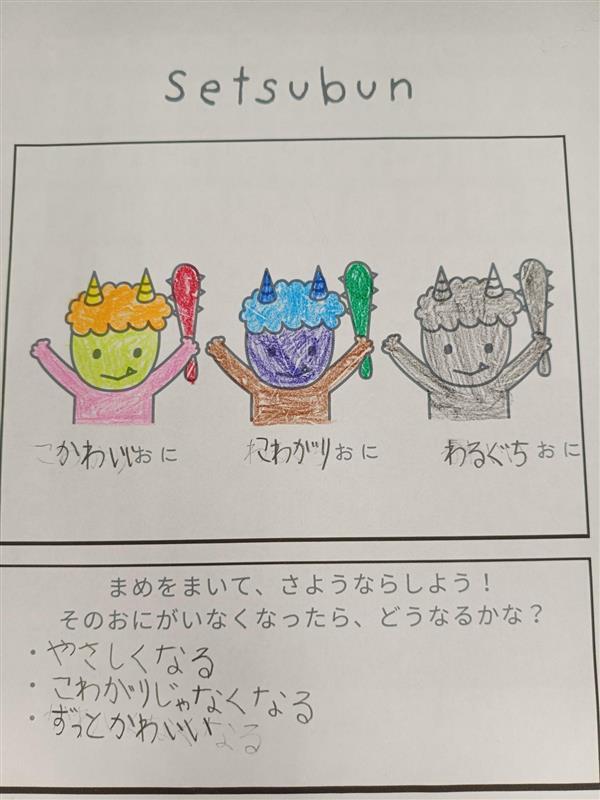 Setsubun
かわいいおに こわがりおに わるぐちおに
まめをまいて、さようならしよう！
そのおにがいなくなったら、どうなるかな？
・やさしくなる
・こわがりじゃなくなる
・ずっとかわいい